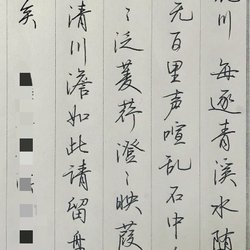 川 每逐青溪水随
无百里声喧乱石中
々泛菱荇澄々映葭
清川澹如此请留
矣